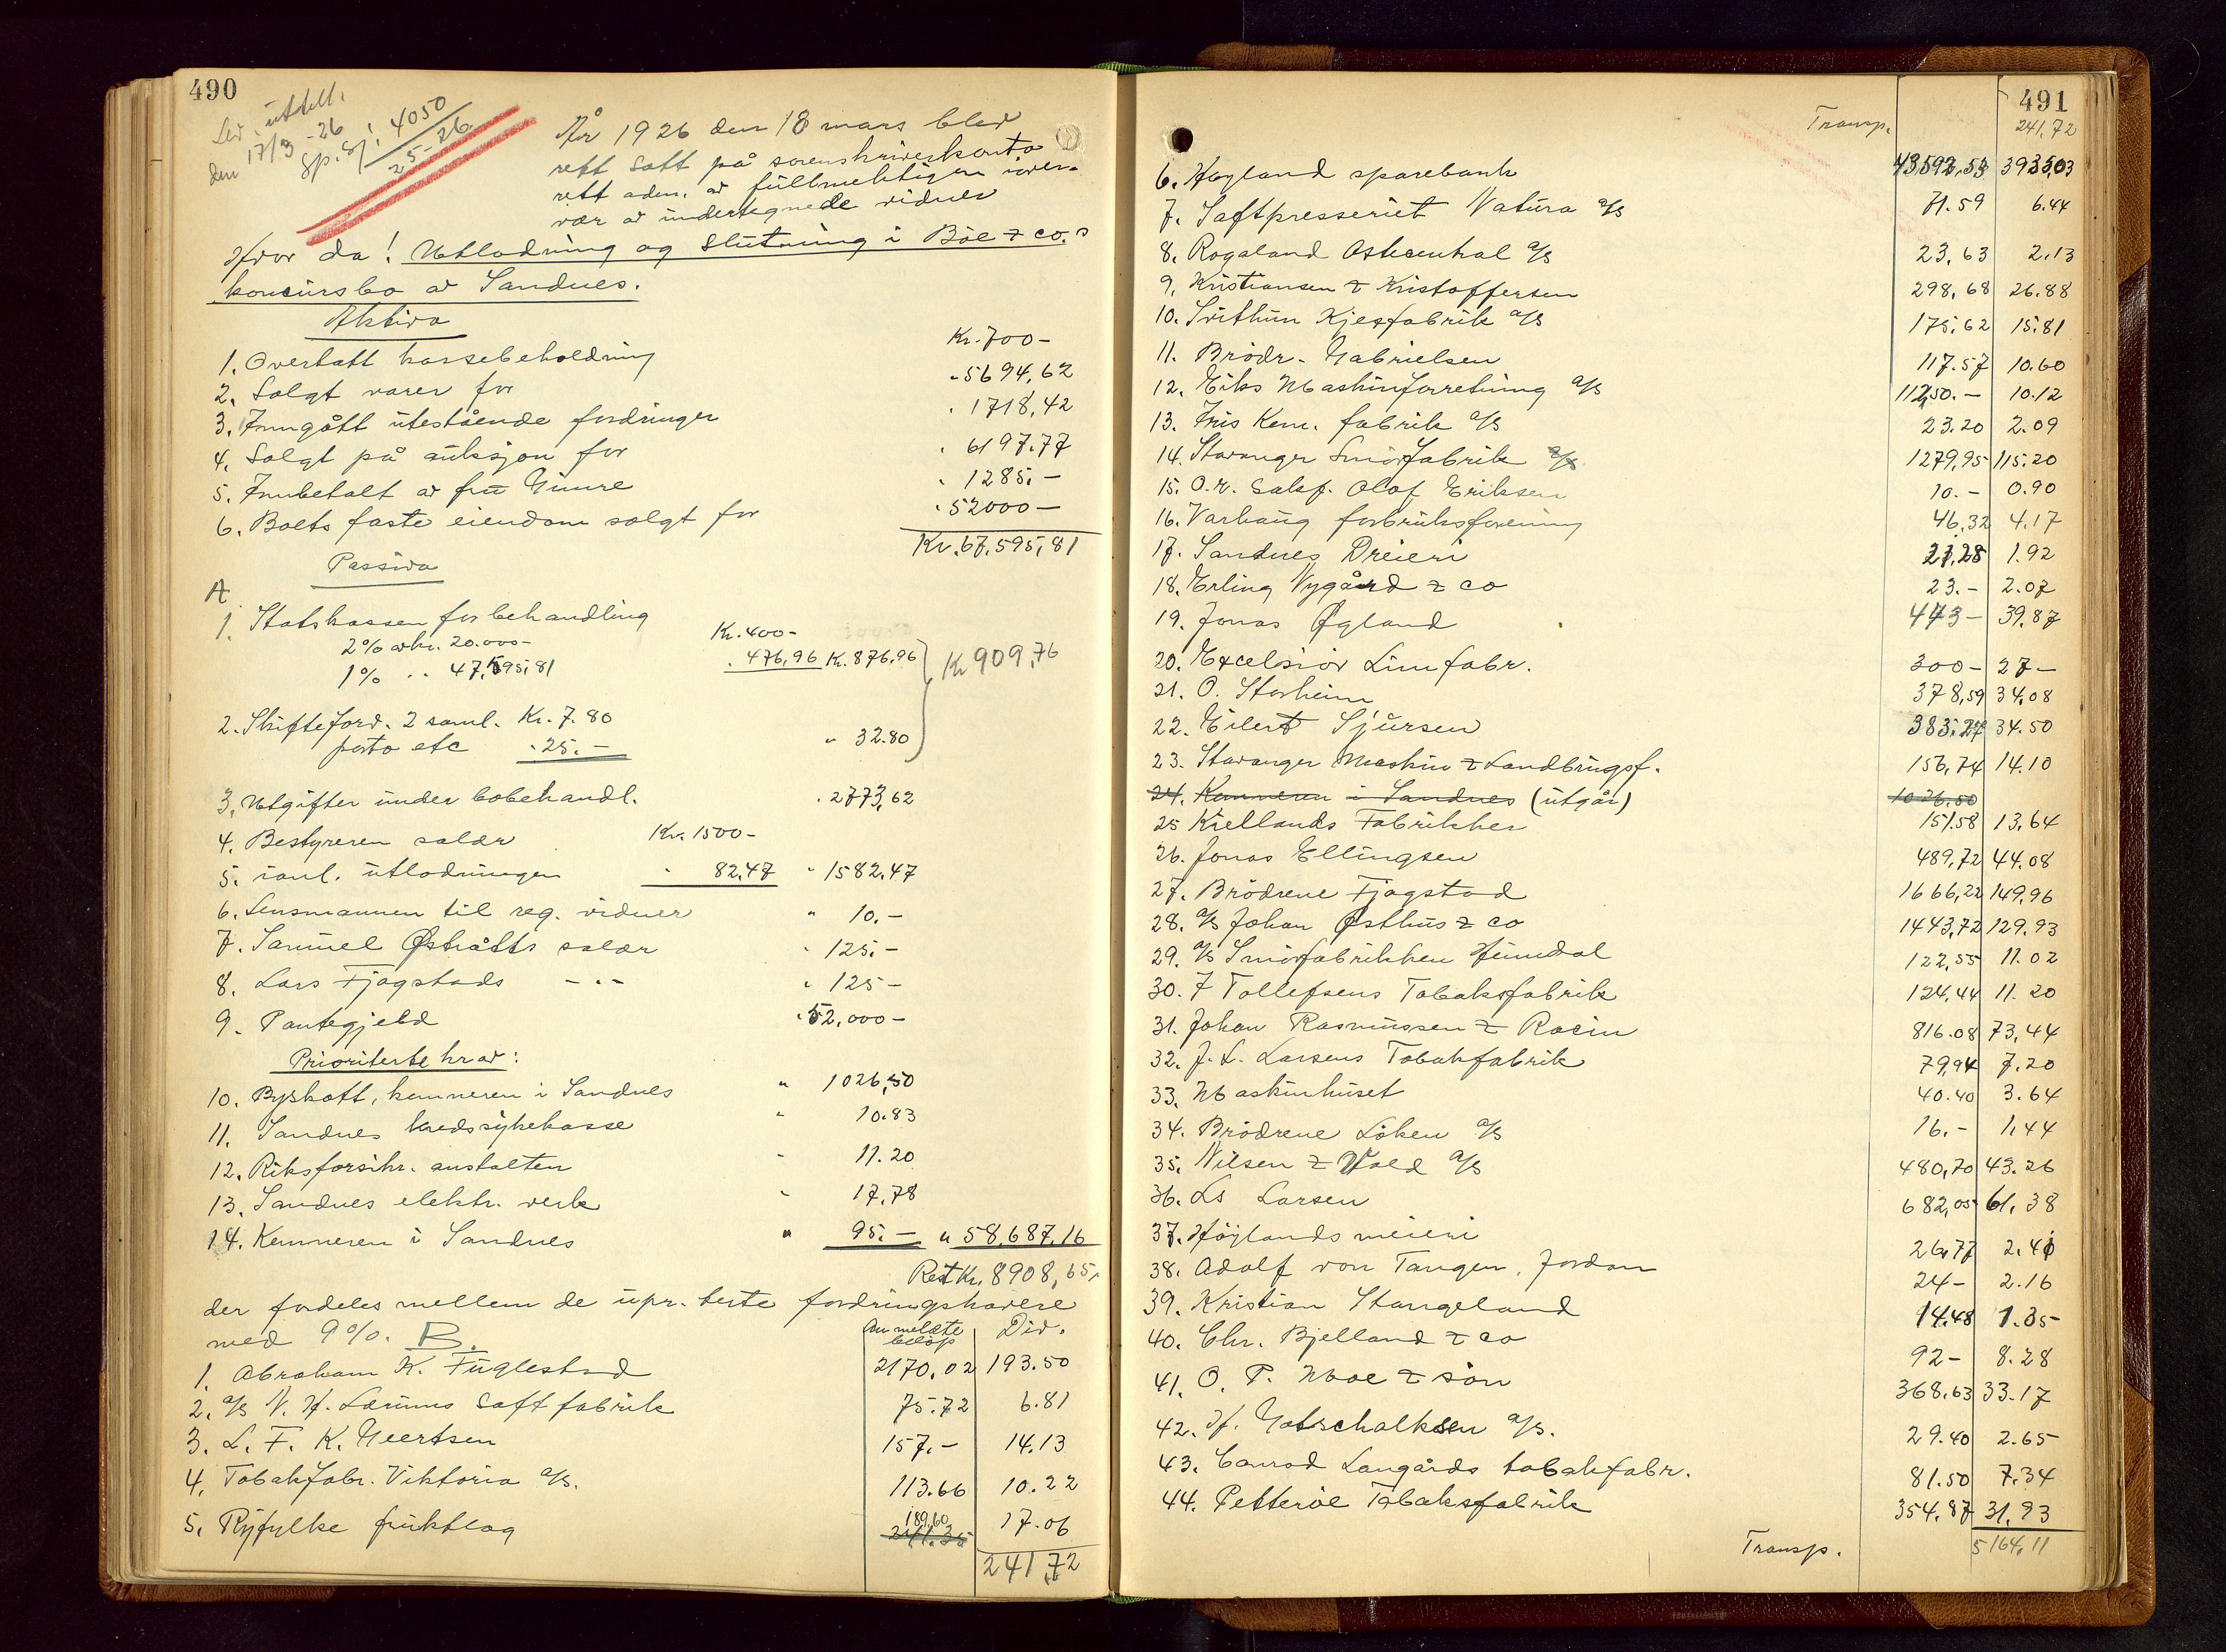 490
utskr.
den 17/3 -26
Sp. Sj: 4050
25-26
År 1926 den 18 mars blev
rett satt på sorenskriverkonto
rett adm. av fullmektigen i over-
vær av undertegnede vidner
Hvor da! Utlodning og Slutning i Böe & co.s
konkursbo av Sandnes.
Aktiva
1. Overtatt kassebeholdning Kr. 700-
2. Solgt varer for " 5694,62
3. Inngått utestående fordringer " 1718,42
4. Solgt på auksjon for " 6197.77
5. Innbetalt av fru Gimre " 1285.-
6. Boets faste eiendom solgt for " 52000-
Kr. 67.595,81
Passiva
A
1. Statskassen for behandling
2% av kr. 20.000- Kr. 400-
1% " " 47,595,81 " 476,96 Kr. 876,96 Kr 909,76
2. Skifteford. 2 saml. Kr. 7.80
porto etc " 25.- " 32.80
3. Utgifter under bobehandl. " 2773,62
4. Bestyreren salær Kr. 1500-
5. innl. utlodningen " 82,47 " 1582,47
6. Lensmannen til reg. vidner " 10.-
7. Samuel Östråtts salær " 125.-
8. Lars Fjogstads - " - " 125-
9. Pantegjeld " 52,000-
Prioriterte krav:
10. Byskatt, kemneren i Sandnes " 1026,50
11. Sandnes kredssykekasse " 10.83
12. Riksforsikr. anstalten " 11.20
13. Sandnes elektr. verk " 17,78
14. Kemneren i Sandnes " 95.- " 58.687.16
Rest Kr. 8908,65
der fordeles mellem de upr.terte fordringshavere
med 9%. B. Anmeldte beløp Div.
1. Abraham K. Fuglestad 2170,02 193.50
2. A/S N. H. Lærums Saftfabrik 75.72 6.81
3. L. F. K. Geertsen 157.- 14.13
4. Tobakfabr. Viktoria A/S. 113.66 10.22
5. Ryfylke fruktlag 189,60 241.35 17.06
241,72
491
Transp. 241,72
6. Høyland sparebank 43592,53 3923,03
7. Saftpresseriet Natura A/S 71.59 6.44
8. Rogaland Ostecentral A/S 23,63 2.13
9. Kristiansen & Kristoffersen 298,68 26.88
10. Svithun Kjexfabrik A/S 175.62 15.81
11. Brödr. Gabrielsen 117.57 10.60
12. Eiks Maskinforretning A/S 112,50.- 10.12
13. Iris Kem. fabrik A/S 23.20 2.09
14. Stavanger Smörfabrik A/S 1279,95 115.20
15. O.R. Saksf. Olaf Eriksen 10.- 0.90
16. Varhaug forbruksforening 46,32 4.17
17. Sandnes Dreieri 21,28 1.92
18. Erling Nygård & co 23.- 2.07
19. Jonas Øgland 443- 39.87
20. Excelsior Limfabr. 300- 27-
21. O. Storheim 378,59 34.08
22. Eilert Sjursen 383.24 34.50
23. Stavanger Maskin & Landbrugsf. 156,74 14.10
24. Kemneren i Sandnes (utgår) 1026.50
25 Kiellands Fabrikker 151.58 13.64
26. Jonas Ellingsen 489,72 44.08
27. Brödrene Fjogstad 1666,22 149,96
28. A/S Johan Østhus & co 1443,72 129.93
29. A/S Smörfabrikken Heimdal 122,55 11.02
30. F Tollefsens Tobaksfabrik 124,44 11.20
31. Johan Rasmussen & Racin 816.08 73,44
32. J. L. Larsens Tobakfabrik 79,94 7.20
33. Maskinhuset 40.40 3.64
34. Brödrene Löken A/S 16.- 1,44
35. Nilsen & Wold A/S 480,70 43.26
36. Ls Larsen 682,05 61,38
37. Höylands meieri 26,77 2.40
38. Adolf von Tangen, Jordan 24- 2.16
39. Kristian Stangeland 14.48 1.35
40. Chr. Bjelland & co 92- 8.28
41. O. P. Moe & sön 368.63 33.17
42. H. Gotschalksen A/S. 29.40 2.65
43. Conrad Langårds tobakfabr. 81.50 7.34
44. Petteröe Tobaksfabrik 354.87 31,93
Transp. 5164,11